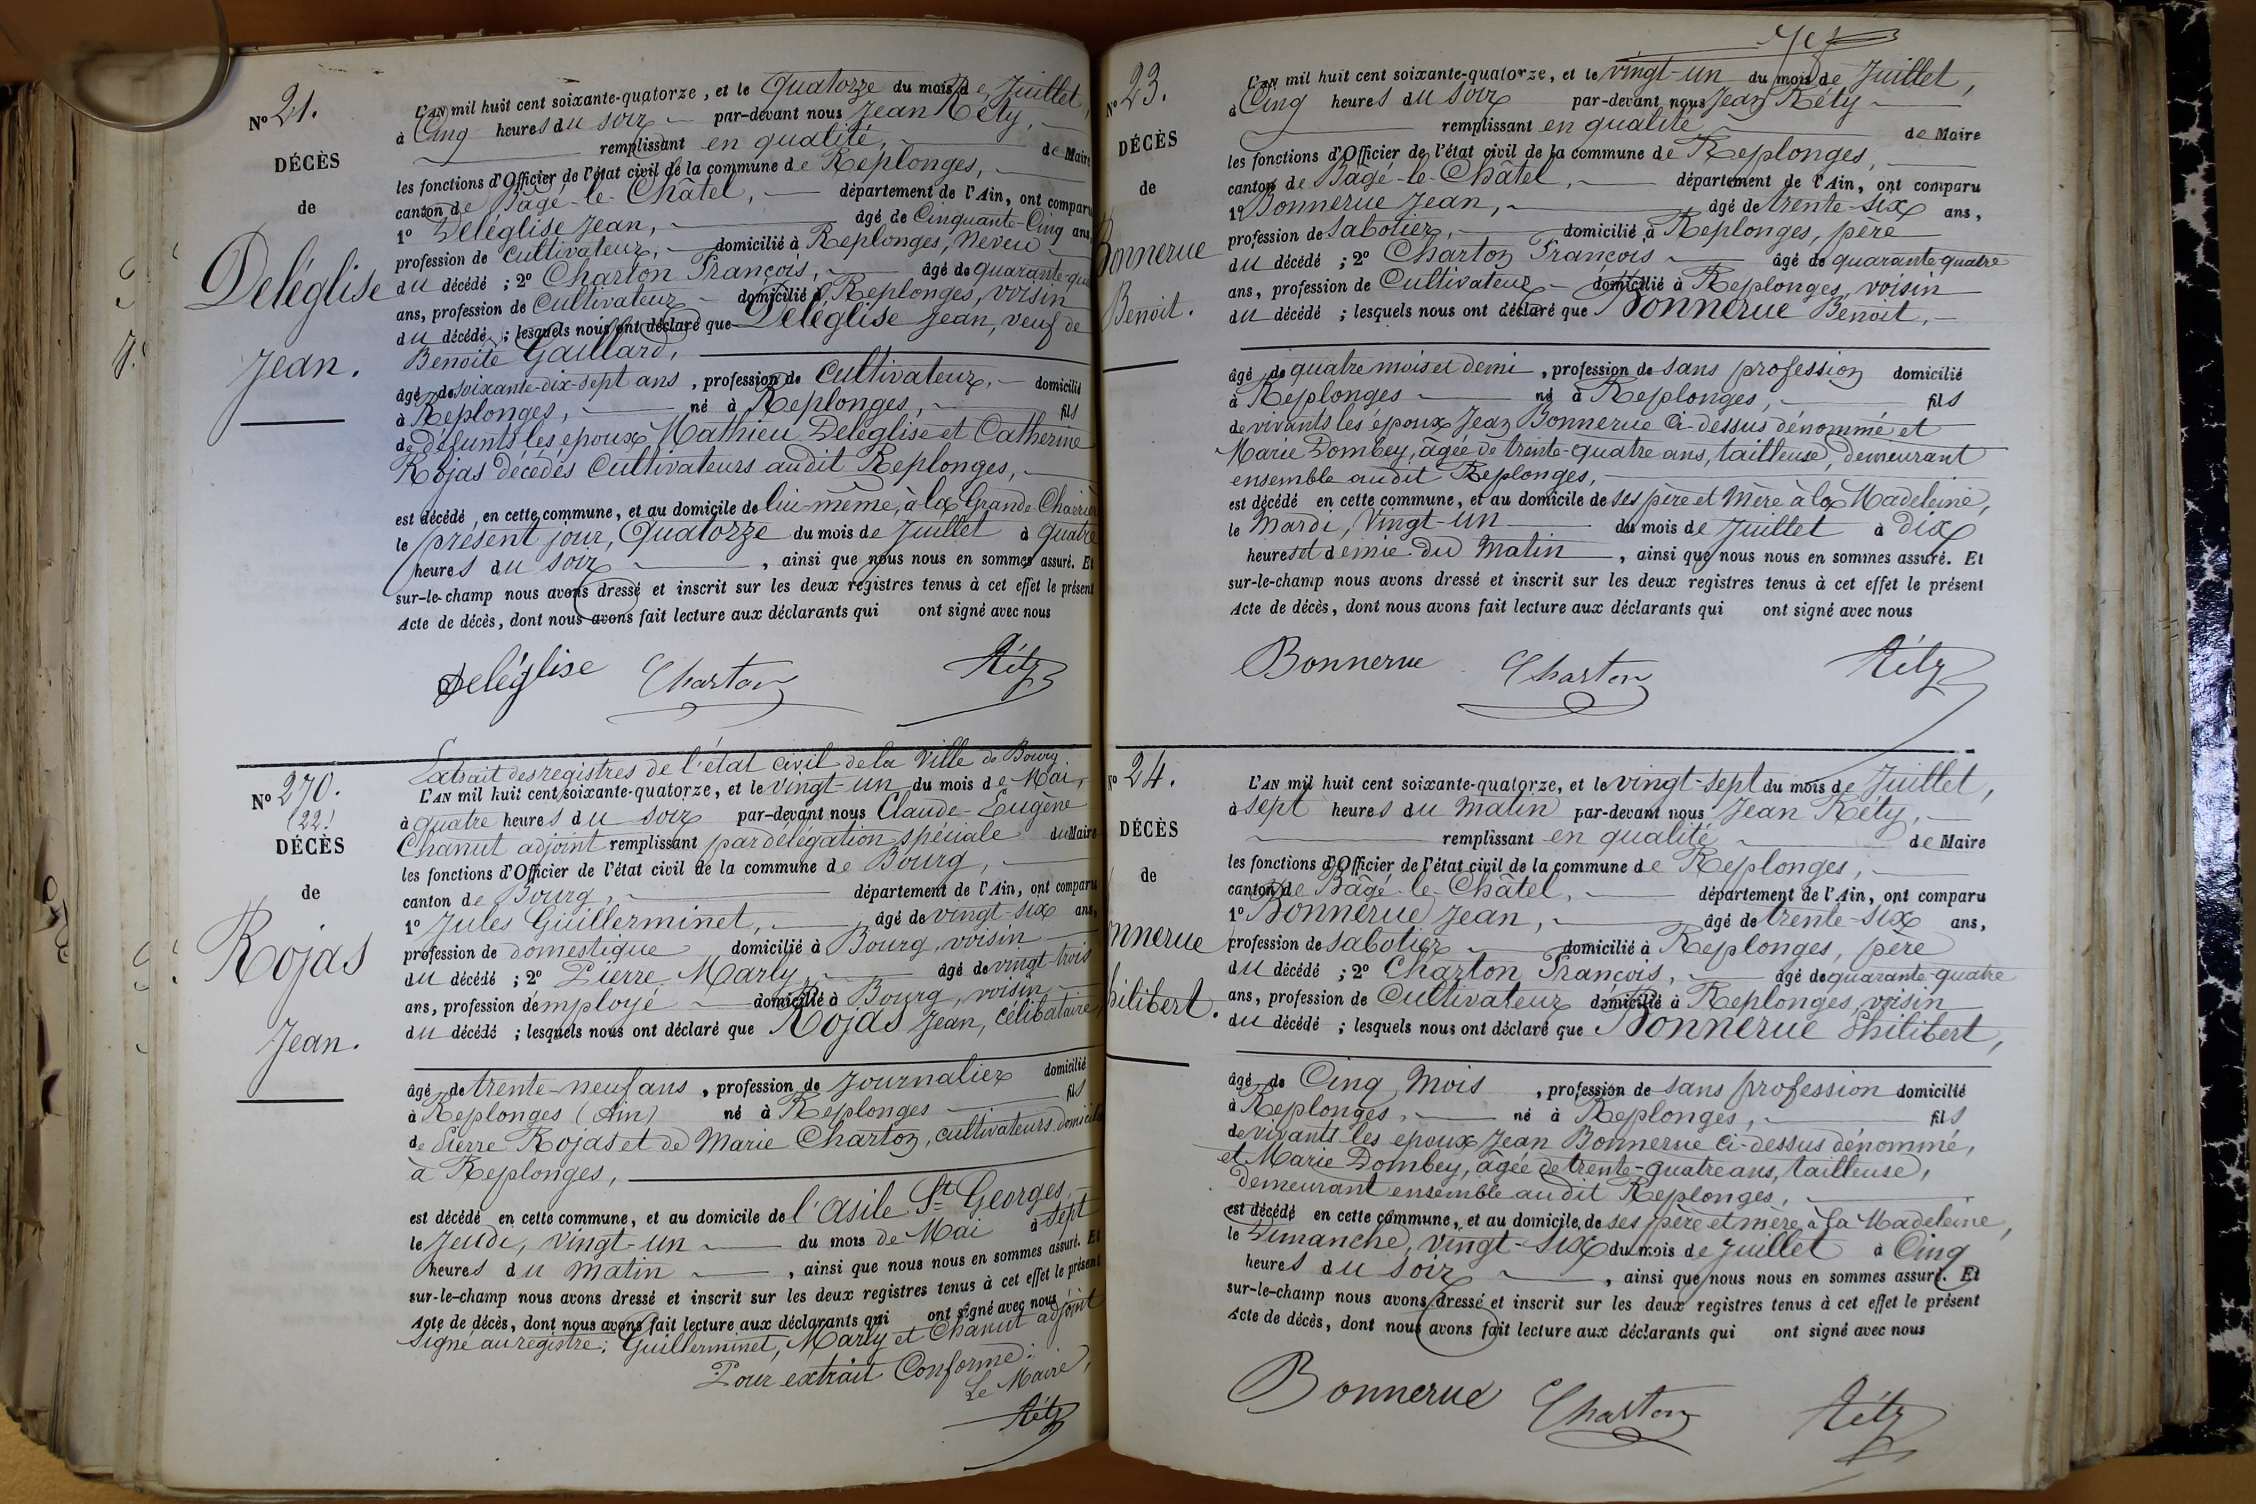 N° 21.
DÉCÈS
de
Deléglise
Jean.
L'AN mil huit cent soixante-quatorze, et le Quatorze du mois de Juillet,
à Cinq heures du soir par-devant nous Jean Réty,
remplissant en qualité, de Maire
les fonctions d'Officier de l'état civil de la commune de Replonges,
canton de Bâgé-le-Châtel, département de l'Ain, ont comparu
1° Deléglise Jean, âgé de Cinquante-Cinq ans,
profession de Cultivateur, domicilié à Replonges, Neveu
du décédé ; 2° Charton François, âgé de quarante-qua
ans, profession de Cultivateur domicilié à Replonges, voisin
du décédé ; lesquels nous ont déclaré que Deléglise Jean, veuf de
Benoite Gaillard,
âgé de soixante-dix-sept ans, profession de Cultivateur, domicilié
à Replonges, né à Replonges, fils
de défunts les époux Mathieu Deléglise et Catherine
Rojas décédés Cultivateurs audit Replonges,
est décédé en cette commune, et au domicile de lui-même, à la Grande Charrièr
le présent jour, Quatorze du mois de Juillet à quatre
heures du soir, ainsi que nous nous en sommes assuré. Et
sur-le-champ nous avons dressé et inscrit sur les deux registres tenus à cet effet le présent
Acte de décès, dont nous avons fait lecture aux déclarants qui ont signé avec nous
Deléglise Charton Réty
N° 270.
(22.)
DÉCÈS
de
Rojas
Jean.
Extrait des registres de l'état civil de la Ville de Bourg
L'AN mil huit cent soixante-quatorze, et le vingt-un du mois de Mai,
à quatre heures du soir par-devant nous Claude-Eugène
Chanut adjoint remplissant par délégation spéciale du Maire
les fonctions d'Officier de l'état civil de la commune de Bourg,
canton de Bourg, département de l'Ain, ont comparu
1° Jules Guillerminet, âgé de vingt-six ans,
profession de domestique domicilié à Bourg, voisin
du décédé ; 2° Pierre Marly âgé de vingt-trois
ans, profession d'employé domicilié à Bourg, voisin
du décédé ; lesquels nous ont déclaré que Rojas Jean, célibataire,
âgé de trente-neuf ans, profession de Journalier domicilié
à Replonges (Ain) né à Replonges fils
de Pierre Rojas et de Marie Charton, cultivateurs domiciliés
à Replonges,
est décédé en cette commune, et au domicile de l'asile St Georges,
le Jeudi, vingt-un du mois de Mai à sept
heures du matin, ainsi que nous nous en sommes assuré. Et
sur-le-champ nous avons dressé et inscrit sur les deux registres tenus à cet effet le présent
Acte de décès, dont nous avons fait lecture aux déclarants qui ont signé avec nous
Signé au registre: Guillerminet, Marly et Chanut adjoint
Pour extrait Conforme:
Le Maire,
Réty
N° 23.
DÉCÈS
de
Bonnerue
Benoit.
L'AN mil huit cent soixante-quatorze, et le vingt-un du mois de Juillet,
à Cinq heures du soir par-devant nous Jean Réty
remplissant en qualité, de Maire
les fonctions d'Officier de l'état civil de la commune de Replonges,
canton de Bâgé-le-Châtel, département de l'Ain, ont comparu
1° Bonnerue Jean, âgé de trente-six ans,
profession de sabotier, domicilié à Replonges, père
du décédé ; 2° Charton François âgé de quarante quatre
ans, profession de Cultivateur domicilié à Replonges, voisin
du décédé ; lesquels nous ont déclaré que Bonnerue Benoit,
âgé de quatre mois et demi, profession de sans profession domicilié
à Replonges né à Replonges, fils
de vivants les époux Jean Bonnerue Ci-dessus dénommé et
Marie Dombey, âgée de trente-quatre ans, tailleuse, demeurant
ensemble audit Replonges,
est décédé en cette commune, et au domicile de ses père et Mère à la Madeleine,
le Mardi, Vingt-un du mois de Juillet à dix
heures et demie du Matin, ainsi que nous nous en sommes assuré. Et
sur-le-champ nous avons dressé et inscrit sur les deux registres tenus à cet effet le présent
Acte de décès, dont nous avons fait lecture aux déclarants qui ont signé avec nous
Bonnerue Charton Réty
N° 24.
DÉCÈS
de
nnerue
hilibert.
L'AN mil huit cent soixante-quatorze, et le vingt-sept du mois de Juillet,
à sept heures du Matin par-devant nous Jean Réty,
remplissant en qualité de Maire
les fonctions d'Officier de l'état civil de la commune de Replonges,
canton de Bâgé-le-Châtel, département de l'Ain, ont comparu
1° Bonnerue Jean, âgé de trente-six ans,
profession de sabotier domicilié à Replonges, père
du décédé ; 2° Charton François, âgé de quarante-quatre
ans, profession de Cultivateur domicilié à Replonges, voisin
du décédé ; lesquels nous ont déclaré que Bonnerue Philibert,
âgé de Cinq Mois, profession de sans profession domicilié
à Replonges, né à Replonges, fils
de vivants les époux Jean Bonnerue Ci-dessus dénommé,
et Marie Dombey, âgée de trente-quatre ans, tailleuse,
demeurant ensemble audit Replonges,
est décédé en cette commune, et au domicile de ses père et mère à la Madeleine,
le Dimanche, vingt-six du mois de Juillet à Cinq
heures du soir, ainsi que nous nous en sommes assuré. Et
sur-le-champ nous avons dressé et inscrit sur les deux registres tenus à cet effet le présent
Acte de décès, dont nous avons fait lecture aux déclarants qui ont signé avec nous
Bonnerue Charton Réty